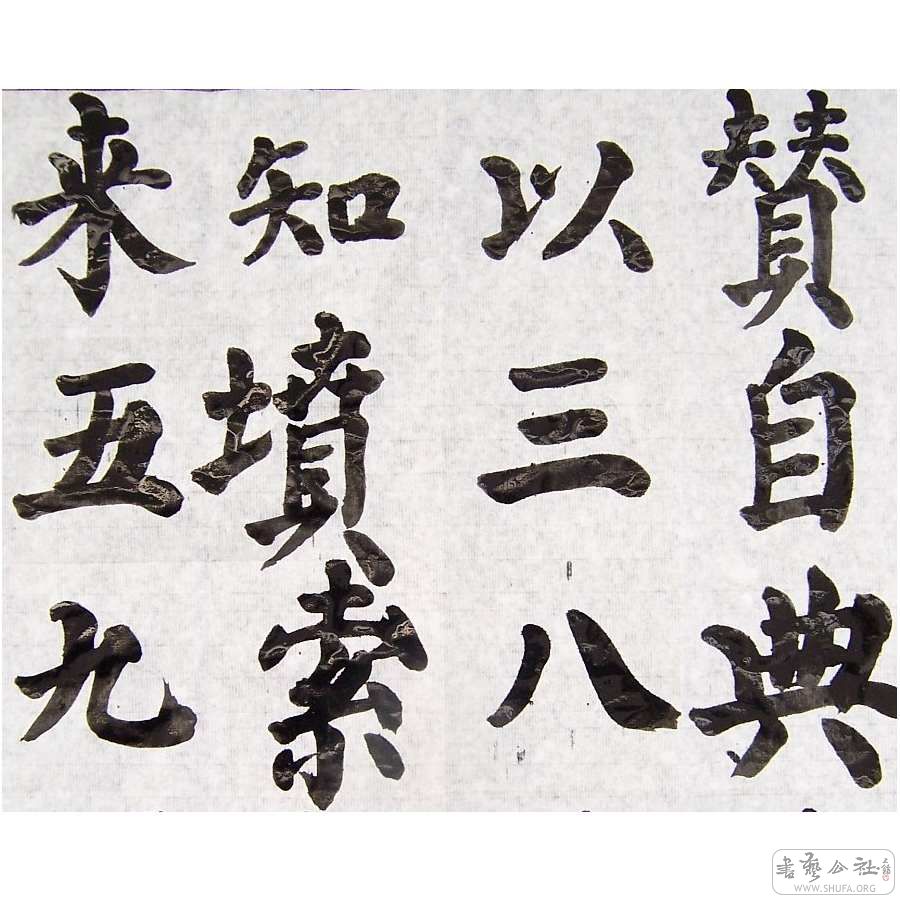 赞自典
以三八
知墳索
来五九
書藝公社
WWW.SHUFA.ORG